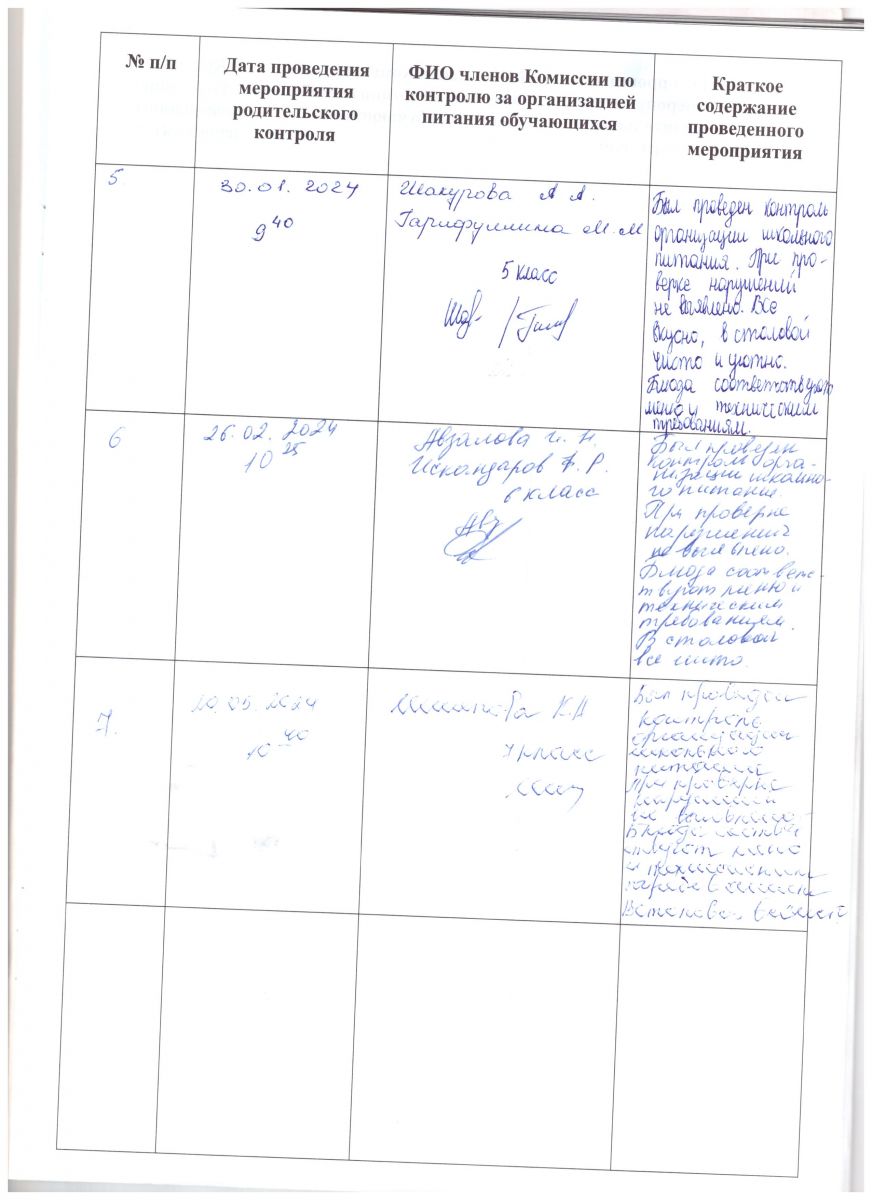 № п/п
Дата проведения
мероприятия
родительского
контроля
ФИО членов Комиссии по
контролю за организацией
питания обучающихся
Краткое
содержание
проведенного
мероприятия
5
30.01.2024
9 40
Шакурова А А.
Гарифуллина М.М
5 класс
Был проведен контроль
организации школьного
питания. При про-
верке нарушений
не выявлено. Все
вкусно, в столовой
чисто и уютно.
Блюда соответствуют
меню и техническим
требованиям.
6
26.02.2024
10 25
Авзалова
Искандаров Р.
6 класс
Был проведен
контроль орга-
низации школьно-
го питания.
При проверке
нарушений
не выявлено.
Блюда соответс-
твуют меню и
техническим
требованиям.
В столовой
все чисто.
7.
2024
10 40
7 класс
Был проведен
контроль
организации
школьного
питания
При проверке
нарушений
не выявлено
Блюда
меню
и
В столовой